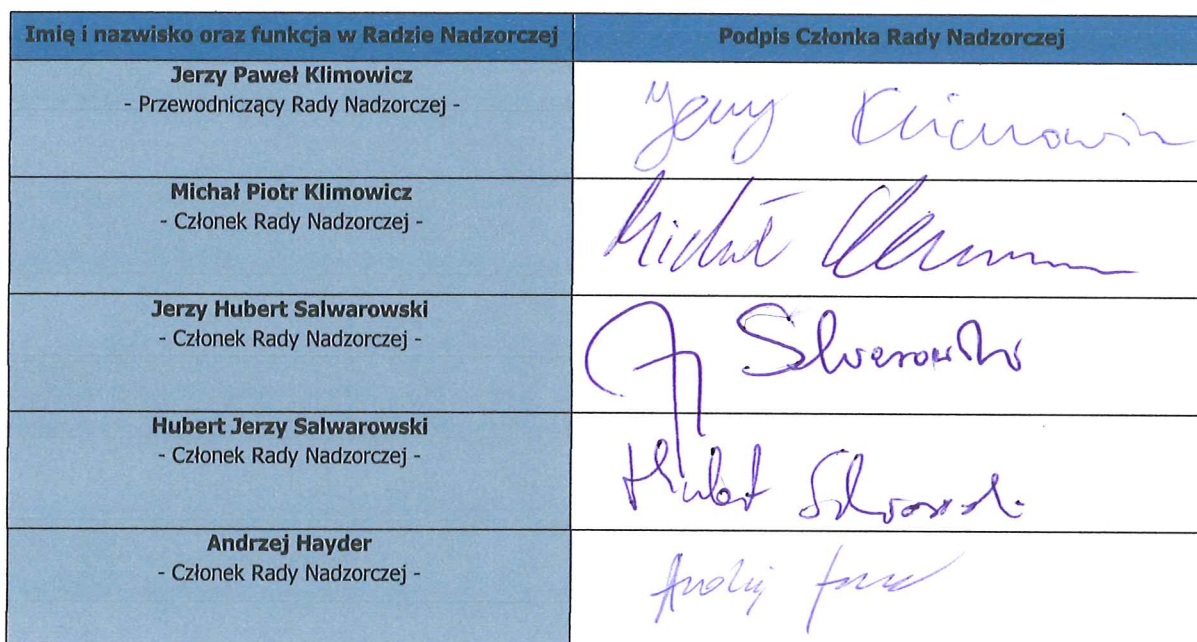 Imię i nazwisko oraz funkcja w Radzie Nadzorczej
Podpis Członka Rady Nadzorczej
Jerzy Paweł Klimowicz
- Przewodniczący Rady Nadzorczej -
Jerzy Klimowicz
Michał Piotr Klimowicz
- Członek Rady Nadzorczej -
Michał
Jerzy Hubert Salwarowski
- Członek Rady Nadzorczej -
Hubert Jerzy Salwarowski
- Członek Rady Nadzorczej -
Hubert
Andrzej Hayder
- Członek Rady Nadzorczej -
Andrzej